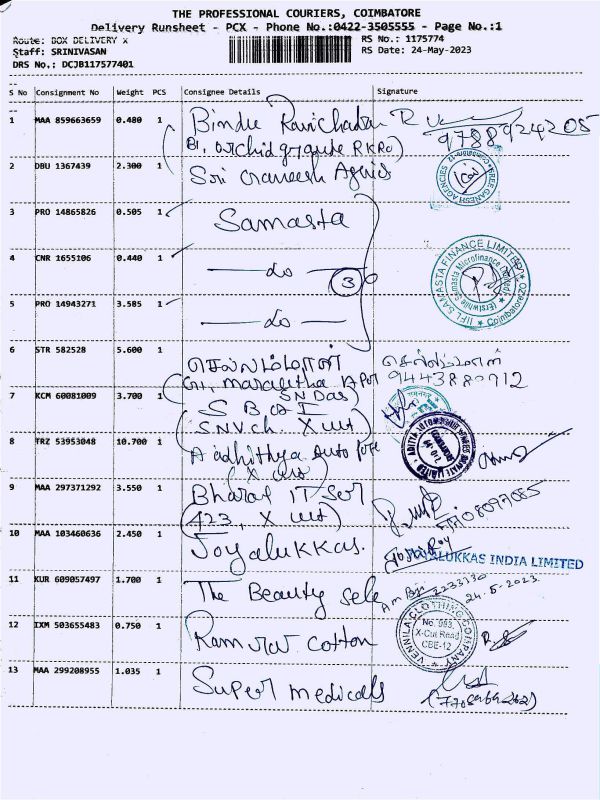 THE PROFESSIONAL COURIERS, COIMBATORE
Delivery Runsheet - PCX - Phone No.:0422-3505555 - Page No.:1
Route: BOX DELIVERY X
RS No.: 1175774
Staff: SRINIVASAN
RS Date: 24-May-2023
DRS No.: DCJB117577401
S No Consignment No Weight PCS Consignee Details Signature
1 MAA 859663659 0.480 1 Bindu Ravichadan R
9788924205
2 DBU 1367439 2.300 1 Sri Ganeesh Agencies
SREE GANESH AGENCIES
3 PRO 14865826 0.505 1 Samasta
4 CNR 1655106 0.440 1 — do —
3
IIFL SAMASTA FINANCE LIMITED
(Erstwhile Samasta Microfinance Limited)
Coimbatore
5 PRO 14943271 3.585 1 — do —
6 STR 582528 5.600 1 செல்லம்மாள் செல்லம்மாள்
9443880912
7 KCM 60081009 3.700 1 S B O I
S.N.V.ch. X cut
8 TRZ 53953048 10.700 1 Aadhithya Auto
(X cut)
9 MAA 297371292 3.550 1 Bharat IT Ser
(423, X cut)
10 MAA 103460636 2.450 1 Joyalukkas.
JOYALUKKAS INDIA LIMITED
11 KUR 609057497 1.700 1 The Beauty sele
24.5.2023.
12 IXM 503655483 0.750 1 Ramraj cotton
VENNILA CLOTHING COMPANY
No. 983,
X-Cut Road
CBE-12
13 MAA 299208955 1.035 1 Super medicals